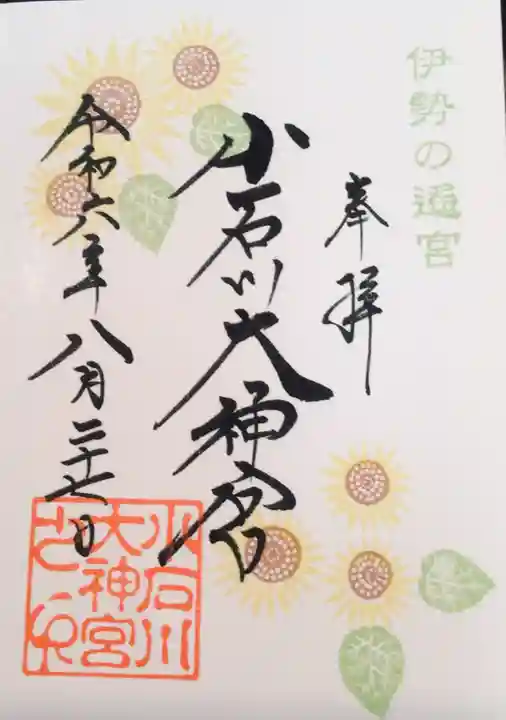 伊勢の遥宮
奉拝
小石川大神宮
令和六年八月二十七日
小石川
大神宮